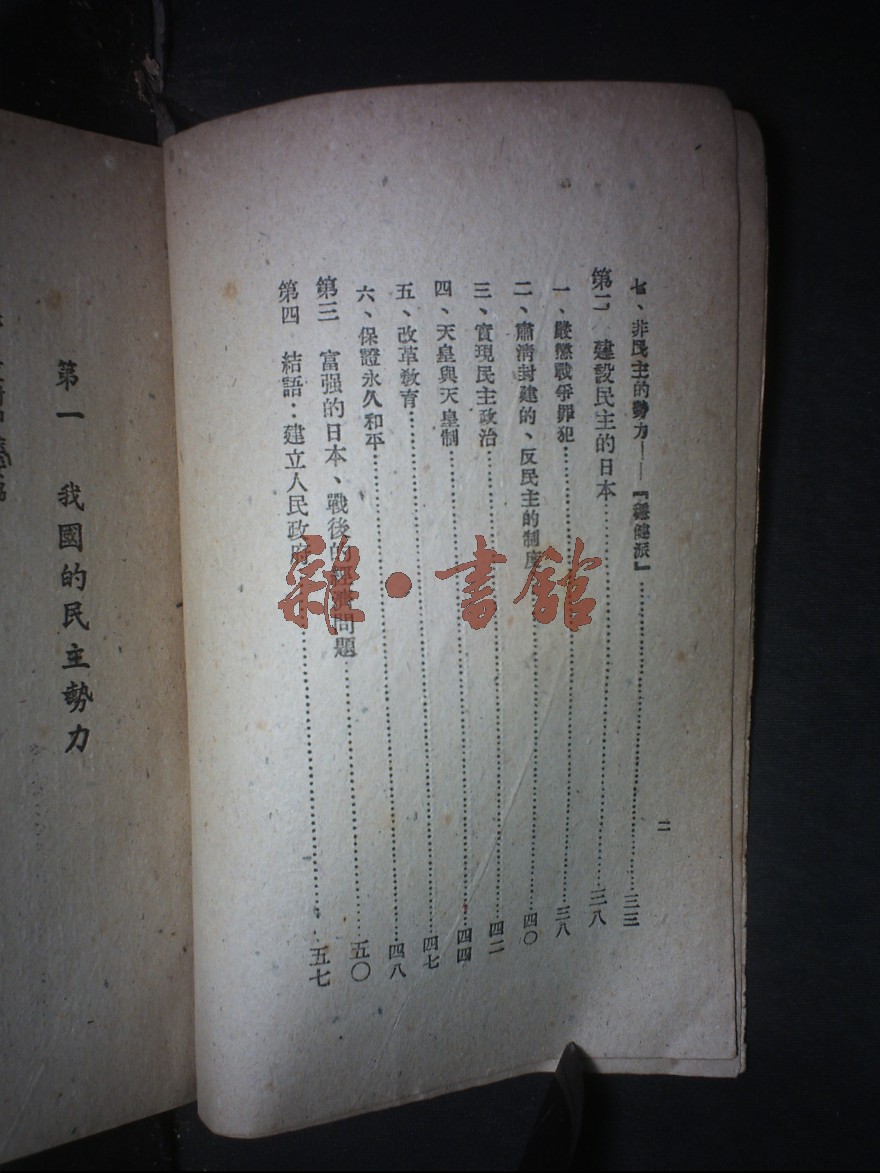 七、非民主的勢力——『穩健派』……三三
第二 建設民主的日本……三八
一、嚴懲戰爭罪犯……三八
二、肅淸封建的、反民主的制度……四〇
三、實現民主政治……四二
四、天皇與天皇制……四四
五、改革敎育……四七
六、保證永久和平……四八
第三 富强的日本、戰後的經濟問題……五〇
第四 結語：建立人民政府……五七
二
雜·書館
第一 我國的民主勢力